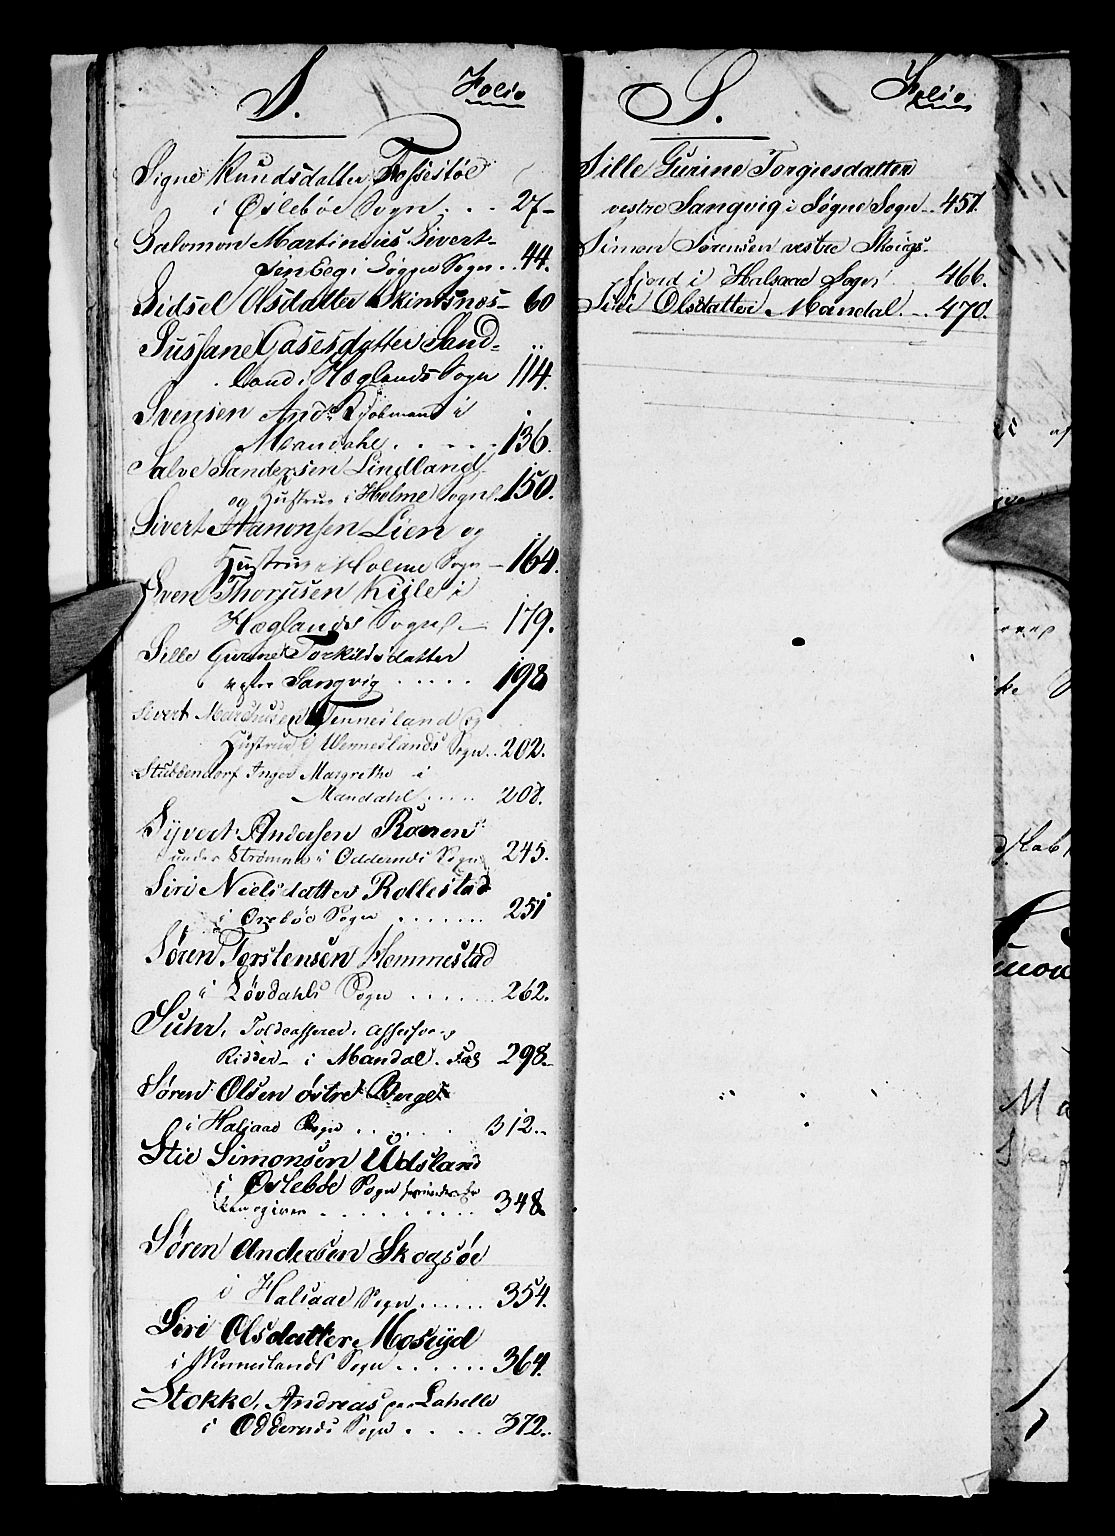 S. Folio
Signe Knudsdatter Fossestøl
i Øslebøe Sogn . . . 27
Salomon Martinius Sivert-
sen Eeg i Søgne Sogn . . 44.
Sidsel Olsdatter Skintsnæs - 60
Sussane Gasesdatter Sand-
land i Hæglands Sogn 114.
Svensen And: i
Mandahl . . . . . 136.
Salve Sandersen Lindland
og Hustrue i Holme Sogn. 150.
Sivert Aanonsen Lien og
Hustrue i Holme Sogn - 164.
Sven Thorjusen Kisle i
Hæglands Sogn - 179.
Sille Gurine Torkildsdatter
vestre Sangvig . . . . . 198
Sivert Marcusen Wennesland og
Hustrue i Wenneslands Sogn . . 202.
Stubbendorf Inger Margrethe i
Mandahl . . . . . 208.
Syvert Andersen Rånen
under Strømme i Oddernes Sogn 245.
Siri Nielsdatter Rollestad
i Øvrebøe Sogn . . . . . . . 251
Søren Torstensen Hommestad
i Løvdahls Sogn . . . . . . . 262.
Suhr, Toldcasserer,
Ridder - i Mandal. Fas 298.
Søren Olsen østre Berge
i Halsaae Sogn . . . . . . 312.
Stie Simonsen Udsland
i Øslebøe Sogn
. . . . . . . . . . 348.
Søren Andersen Skogsøe
i Halsaae Sogn . . . . . . 354.
Siri Olsdatter Moseyd
i Winneslands Sogn . . . . . . . 364.
Stokke, Andreas paa Lahelle
i Oddernes Sogn . . . . 372.
S. Folio
Sille Gurine Torgiesdatter
vestre Sangvig i Søgne Sogn . . 451.
Simon Sørensen vestre Skogs-
fjord i Halsaae Sogn 466.
Siri Olsdatter Mandal . . 470.